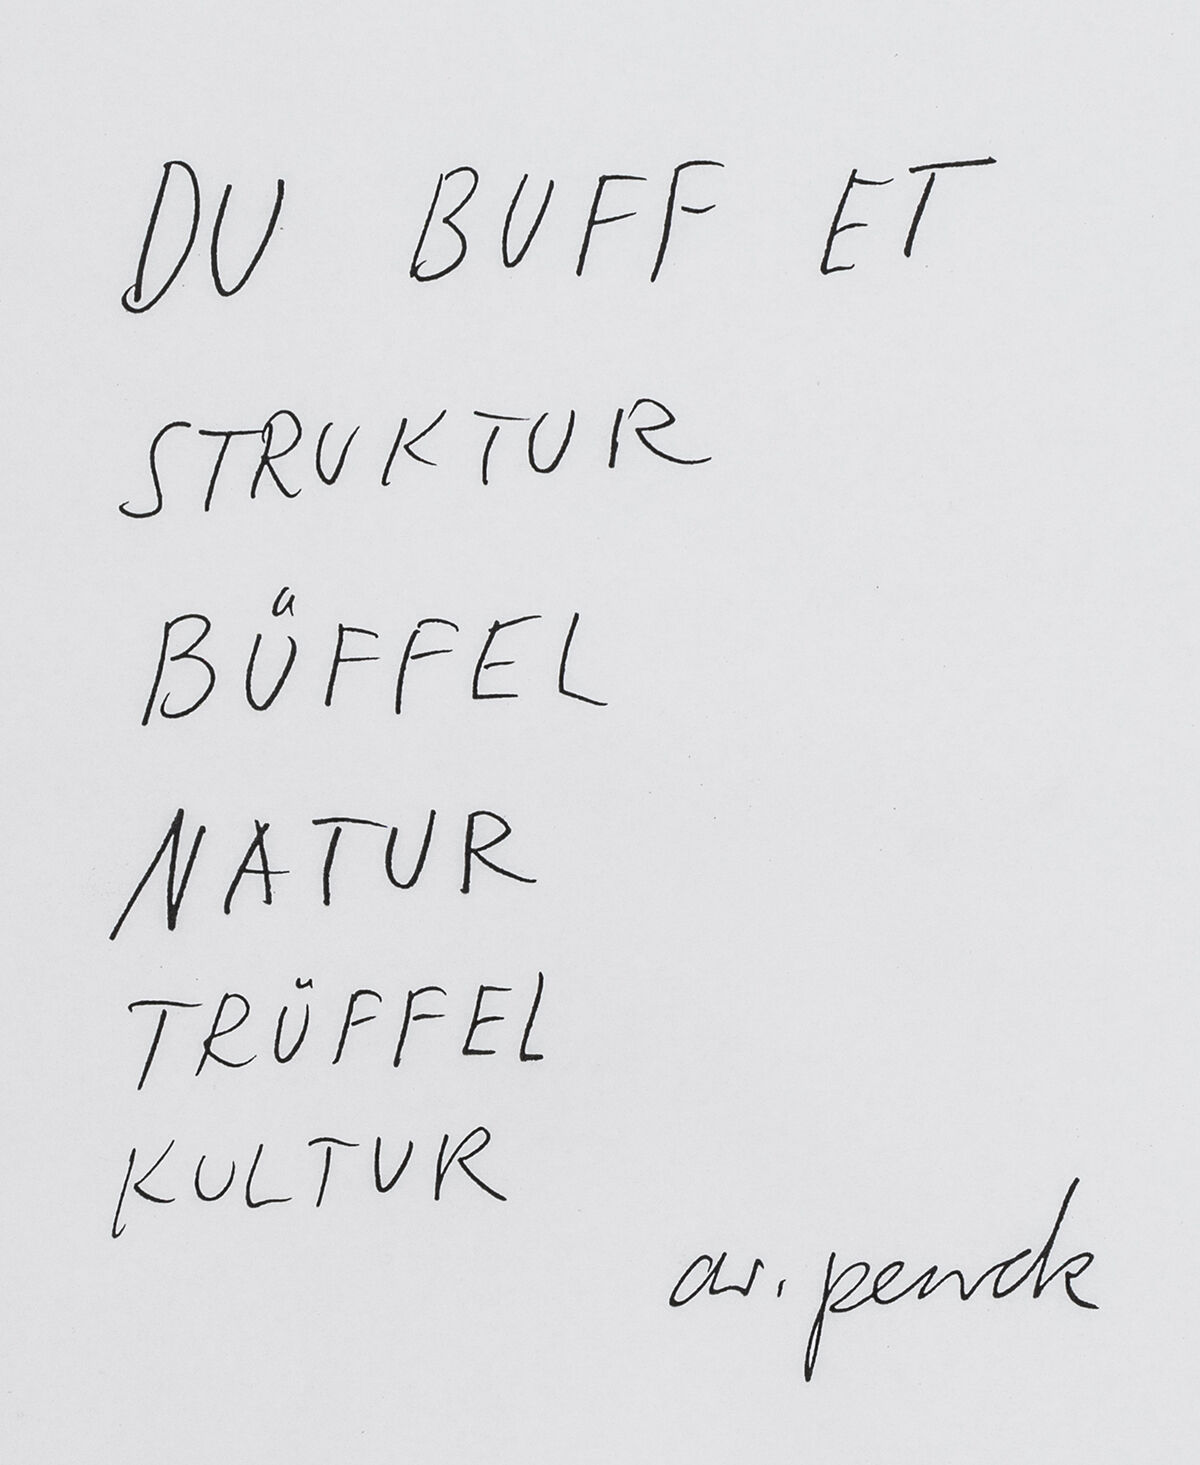 DU BUFF ET
STRUKTUR
BÜFFEL
NATUR
TRÜFFEL
KULTUR
ar. penck